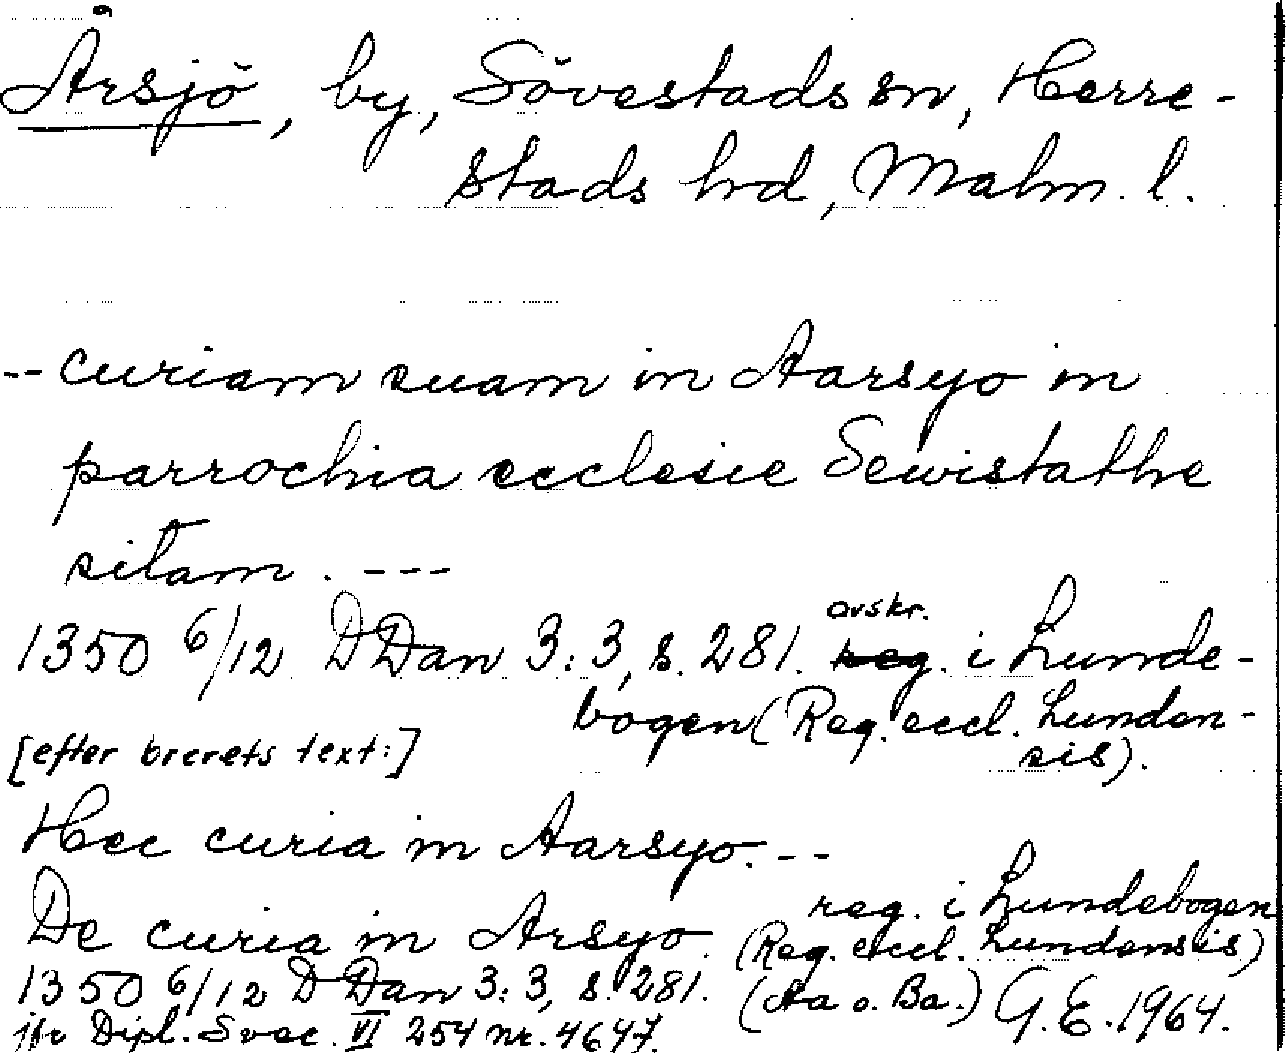 Årsjö, by, Sövestads sn, Herre-
stads hd, Malm. l.
-- curiam suam in Aarsyo in
parrochia ecclesie Sewistathe
sitam. ---
1350 6/12 DDan 3:3, s. 281. avskr. i Lunde-
bogen (Reg. eccl. Lunden-
sis).
[efter brevets text:]
Hec curia in Aarsyo. --
De curia in Arsyo. reg. i Lundebogen
(Reg. eccl. Lundensis)
1350 6/12 DDan 3:3, s. 281. (Aa o. Ba.) G.E. 1964.
jfr Dipl. Svec. VI 254 nr. 4647.